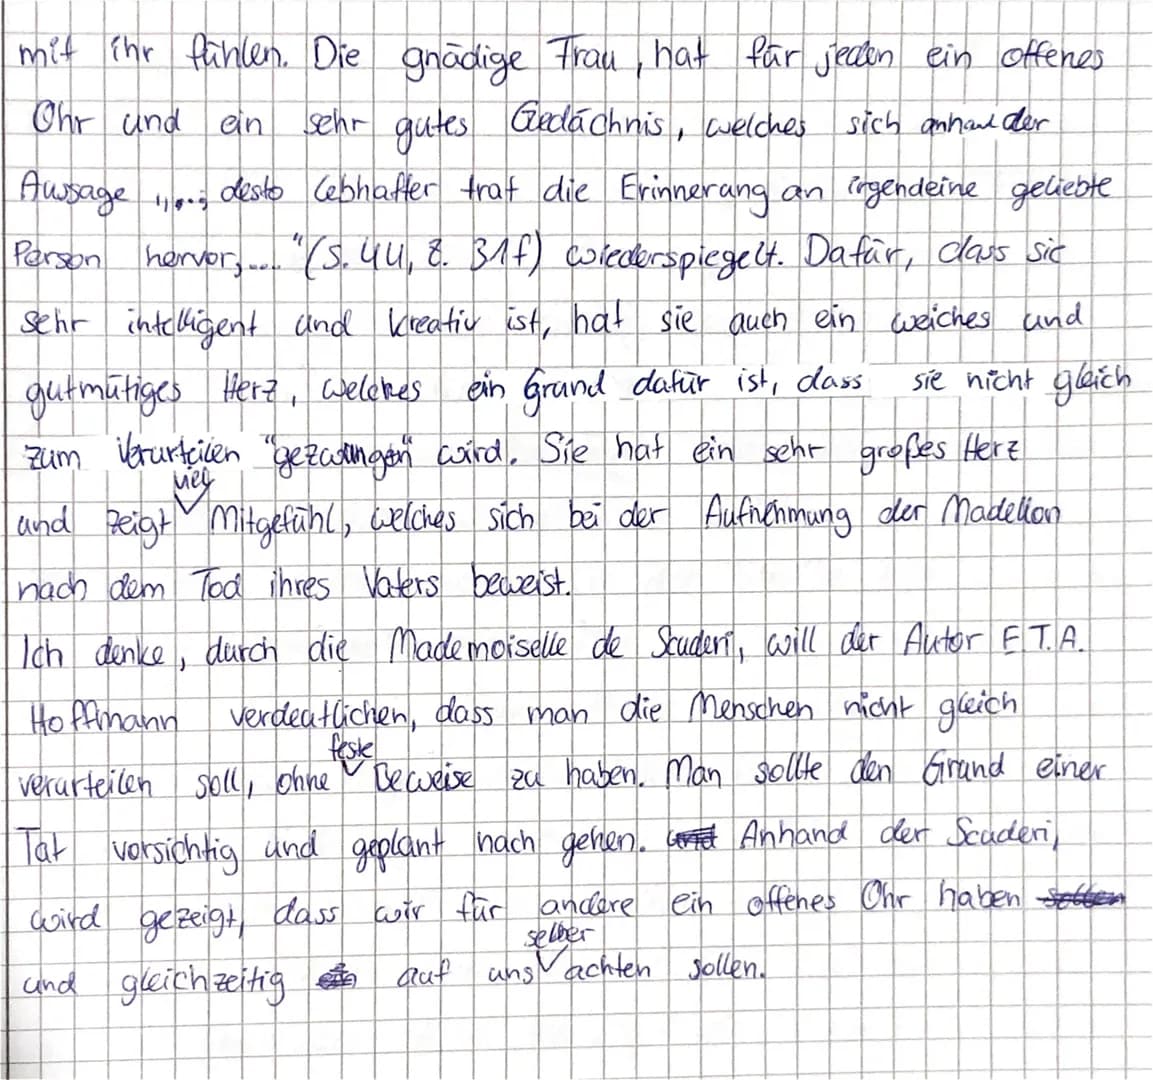 mit ihr fühlen. Die gnädige Frau, hat für jeden ein offenes
Ohr und ein sehr gutes Gedächnis, welches sich anhand der
Aussage „...; desto lebhafter trat die Erinnerung an irgendeine geliebte
Person hervor;...."(S. 44, Z. 31f) wiederspiegelt. Dafür, dass sie
sehr intelligent und kreativ ist, hat sie auch ein weiches und
gutmütiges Herz, welches ein Grund dafür ist, dass sie nicht gleich
zum Verurteilen "gezwungen" wird. Sie hat ein sehr großes Herz
und zeigt viel Mitgefühl, welches sich bei der Aufnehmung der Madelon
nach dem Tod ihres Vaters beweist.
Ich denke, durch die Mademoiselle de Scuderi, will der Autor E.T.A.
Hoffmann verdeutlichen, dass man die Menschen nicht gleich
verurteilen soll, ohne feste Beweise zu haben. Man sollte den Grund einer
Tat vorsichtig und geplant nach gehen. und Anhand der Scuderi,
wird gezeigt, dass wir für andere ein offenes Ohr haben sollen
und gleichzeitig ein auf uns selber achten sollen.